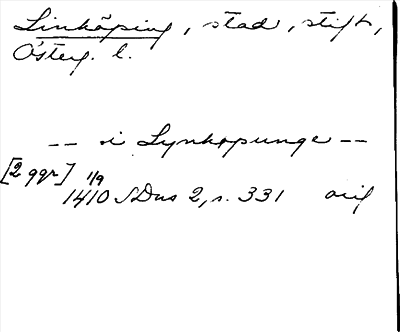 Linköping, stad, stift,
Österg. l.
-- i Lynkopunge --
[2 ggr] 1/9
1410 SDns 2, s. 331 orig